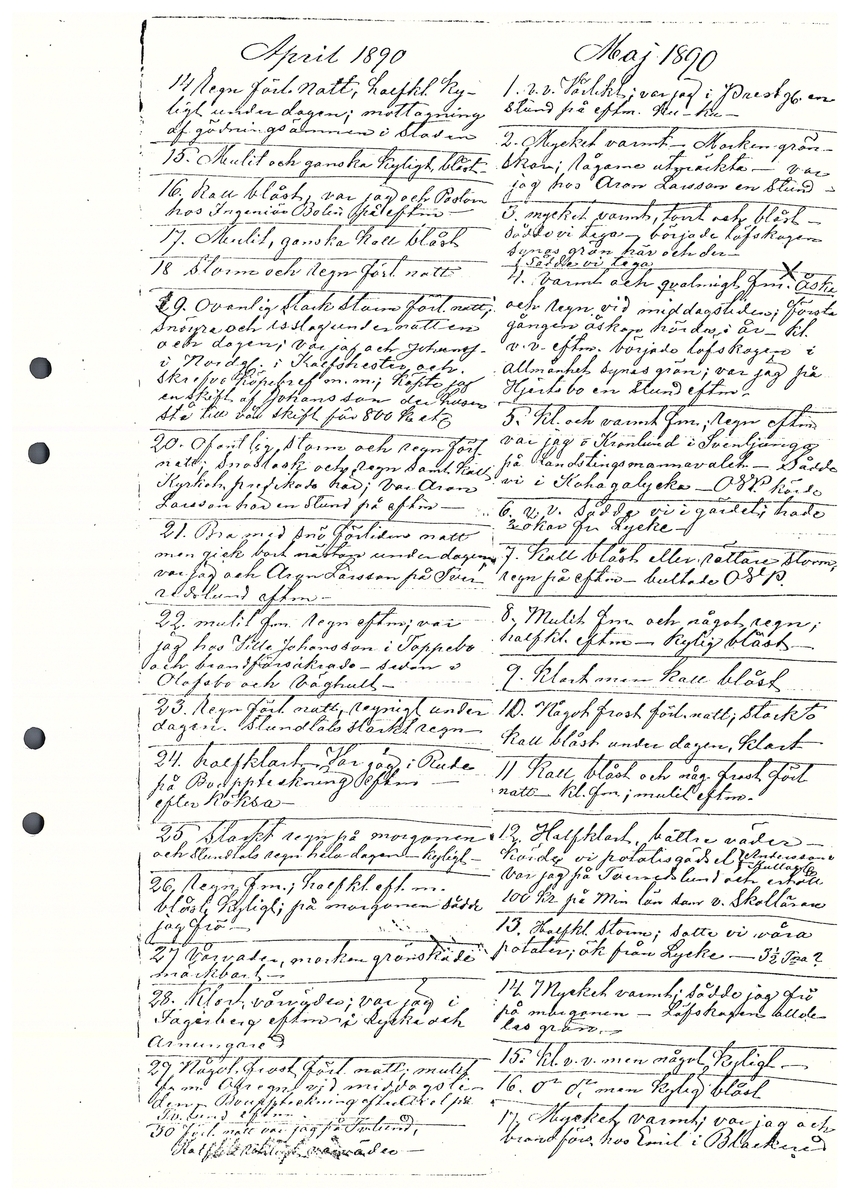 April 1890
14 Regn förl. natt, halfkl. ky-
ligt under dagen; mottagning
af gödningsämnen i Staven
15. Mulit och ganska kyligt, blåst-
16. kall blåst, var jag och Pastorn
hos Ingeniör Bolin på eftm-
17. Mulit, ganska kall blåst
18 Storm och regn förl. natt
19. Ovanlig stark storm förl. natt;
snöyra och isslag under natten
och dagen; var jag och Johanns-
i Nordg. i Kalfshester och
skrefvo Köpebref m.m; köpte jag
en skift af Johansson der husen
stå till vår skift för 800 k etc
20. Ofantlig storm och regn förl.
natt; snöslask och regn samt kallt
Kyrkoh. predikade här; var Aron
Larsson här en stund på eftm-
21. Bra med snö förliden natt
men gick bort nästan under dagen
var jag och Aron Larsson på Tver-
redslund eftm-
22. mulit fm. regn eftm; var
jag hos Ville Johansson i Toppebo
och brandförsäkrade - sedan i
Olofsbo och Våghult-
23. Regn förl. natt, regnigt under
dagen. Stundtals starkt regn-
24. halfklart. Var jag i Rude
på Bouppteckning eftm-
efter Kôksa-
25 Starkt regn på morgonen
och stundtals regn hela dagen - kyligt-
26, Regn fm.; halfkl. eft. m.
blåst, kyligt; på morgonen sådde
jag frö-
27 Vårväder, marken grönskade
märkbart-
28. Klart, vårväder; var jag i
Fagerberg eftm i Lycke och
Arnungared
29 Något frost förl. natt; mulit
fm Ofregn vid middagsti-
den; Bouppteckning efter Axel på
Tv.lund eftm.
30 förl. natt var jag på Tv.lund,
Halfkl. vårväder-
Maj 1890
1. v.v. Härligt; var jag i Prestg. en
stund på eftm.
2. Mycket varmt - Marken grön-
skar; rågarne utmärkta - var
jag hos Aron Larsson en stund -
3. mycket varmt, torrt och blåst -
sådde vi tega - började löfskogen
synas grön här och der-
Sådde vi tega
4. varmt och qvalmigt fm. X Åska
och regn vid middagstiden; första
gången åskan hördes i år - kl.
v.v. eftm. började löfskogen i
allmänhet synas grön; var jag på
Hjertebo en stund eftm.
5. Kl. och varmt fm, regn eftm
var jag o Kronlund i Svenljunga
på landstingsmannavalet - Sådde
vi i Kohagalycka - O&P. körde
6 v.v. Sådde vi i gärdet; hade
3 ökar fr Lycke-
7. Kall blåst eller rättare storm,
regn på eftm - bultade O&P.
8. Mulit fm. och något regn;
halfkl. eftm - kylig blåst -
9. klart men kall blåst
10. Något frost förl. natt; starkt
kall blåst under dagen, klart-
11 Kall blåst och någ. frost förl
natt - kl. fm; mulit eftm.
12. Halfklart, bättre väder -
körde vi potatisgödsel Anderssons
Kullag
var jag på Tverredslund och erhöll
100 kr. på Min lön som v. Skollärare
13. Halfkl. storm; satte vi våra
potater; ök från Lycke - 3½ Tna?
14. Mycket varmt; sådde jag frö
på morgonen - Löfskogen allde-
les grön.-
15. kl. v.v. men något kyligt -
16. d:o d:o, men kylig blåst
17, Mycket varmt; var jag och
brandförs. hos Emil i Blackered